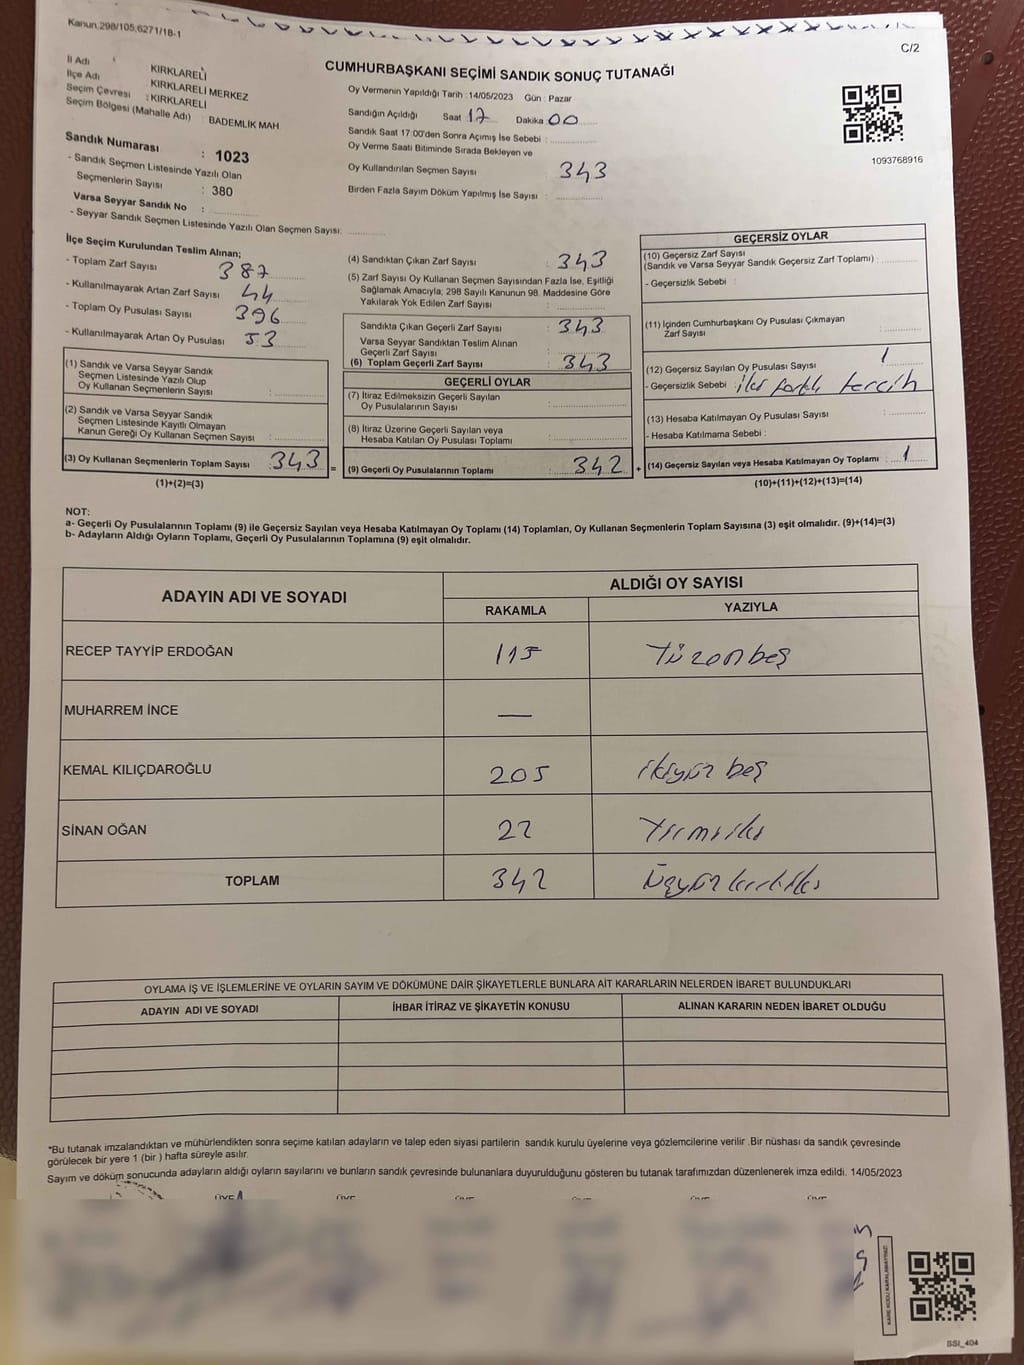 Kanun.298/105,6271/18-1
C/2
CUMHURBAŞKANI SEÇİMİ SANDIK SONUÇ TUTANAĞI
İl Adı : KIRKLARELİ
İlçe Adı KIRKLARELİ MERKEZ
Seçim Çevresi : KIRKLARELİ
Seçim Bölgesi (Mahalle Adı) : BADEMLİK MAH
Sandık Numarası : 1023
- Sandık Seçmen Listesinde Yazılı Olan
Seçmenlerin Sayısı : 380
Varsa Seyyar Sandık No :
- Seyyar Sandık Seçmen Listesinde Yazılı Olan Seçmen Sayısı:
Oy Vermenin Yapıldığı Tarih :14/05/2023 Gün : Pazar
Sandığın Açıldığı Saat 17 Dakika 00
Sandık Saat 17.00'den Sonra Açımış İse Sebebi :
Oy Verme Saati Bitiminde Sırada Bekleyen ve
Oy Kullandırılan Seçmen Sayısı 343
Birden Fazla Sayım Döküm Yapılmış İse Sayısı :
1093768916
İlçe Seçim Kurulundan Teslim Alınan;
- Toplam Zarf Sayısı 387
- Kullanılmayarak Artan Zarf Sayısı 44
- Toplam Oy Pusulası Sayısı 396
- Kullanılmayarak Artan Oy Pusulası 53
(1) Sandık ve Varsa Seyyar Sandık
Seçmen Listesinde Yazılı Olup
Oy Kullanan Seçmenlerin Sayısı :
(2) Sandık ve Varsa Seyyar Sandık
Seçmen Listesinde Kayıtlı Olmayan
Kanun Gereği Oy Kullanan Seçmen Sayısı :
(3) Oy Kullanan Seçmenlerin Toplam Sayısı : 343 =
(1)+(2)=(3)
(4) Sandıktan Çıkan Zarf Sayısı : 343
(5) Zarf Sayısı Oy Kullanan Seçmen Sayısından Fazla İse, Eşitliği
Sağlamak Amacıyla, 298 Sayılı Kanunun 98. Maddesine Göre
Yakılarak Yok Edilen Zarf Sayısı :
Sandıkta Çıkan Geçerli Zarf Sayısı : 343
Varsa Seyyar Sandıktan Teslim Alınan
Geçerli Zarf Sayısı :
(6) Toplam Geçerli Zarf Sayısı : 343
GEÇERLİ OYLAR
(7) İtiraz Edilmeksizin Geçerli Sayılan
Oy Pusulalarının Sayısı :
(8) İtiraz Üzerine Geçerli Sayılan veya
Hesaba Katılan Oy Pusulası Toplamı :
(9) Geçerli Oy Pusulalarının Toplamı : 342 +
GEÇERSİZ OYLAR
(10) Geçersiz Zarf Sayısı
(Sandık ve Varsa Seyyar Sandık Geçersiz Zarf Toplamı) :
- Geçersizlik Sebebi :
(11) İçinden Cumhurbaşkanı Oy Pusulası Çıkmayan
Zarf Sayısı :
(12) Geçersiz Sayılan Oy Pusulası Sayısı : 1
- Geçersizlik Sebebi : iki farklı tercih
(13) Hesaba Katılmayan Oy Pusulası Sayısı :
- Hesaba Katılmama Sebebi :
(14) Geçersiz Sayılan veya Hesaba Katılmayan Oy Toplamı : 1
(10)+(11)+(12)+(13)=(14)
NOT:
a- Geçerli Oy Pusulalarının Toplamı (9) ile Geçersiz Sayılan veya Hesaba Katılmayan Oy Toplamı (14) Toplamları, Oy Kullanan Seçmenlerin Toplam Sayısına (3) eşit olmalıdır. (9)+(14)=(3)
b- Adayların Aldığı Oyların Toplamı, Geçerli Oy Pusulalarının Toplamına (9) eşit olmalıdır.
ADAYIN ADI VE SOYADI
ALDIĞI OY SAYISI
RAKAMLA YAZIYLA
RECEP TAYYİP ERDOĞAN 115 Yüzonbeş
MUHARREM İNCE —
KEMAL KILIÇDAROĞLU 205 ikiyüz beş
SİNAN OĞAN 22 Yirmiiki
TOPLAM 342 Üçyüz kırkiki
OYLAMA İŞ VE İŞLEMLERİNE VE OYLARIN SAYIM VE DÖKÜMÜNE DAİR ŞİKAYETLERLE BUNLARA AİT KARARLARIN NELERDEN İBARET BULUNDUKLARI
ADAYIN ADI VE SOYADI İHBAR İTİRAZ VE ŞİKAYETİN KONUSU ALINAN KARARIN NEDEN İBARET OLDUĞU
*Bu tutanak imzalandıktan ve mühürlendikten sonra seçime katılan adayların ve talep eden siyasi partilerin sandık kurulu üyelerine veya gözlemcilerine verilir .Bir nüshası da sandık çevresinde
görülecek bir yere 1 (bir ) hafta süreyle asılır.
Sayım ve döküm sonucunda adayların aldığı oyların sayılarını ve bunların sandık çevresinde bulunanlara duyurulduğunu gösteren bu tutanak tarafımızdan düzenlenerek imza edildi. 14/05/2023
ÜYE ÜYE ÜYE ÜYE ÜYE ÜYE
KARE KODU KARALAMAYINIZ!
SSI_404